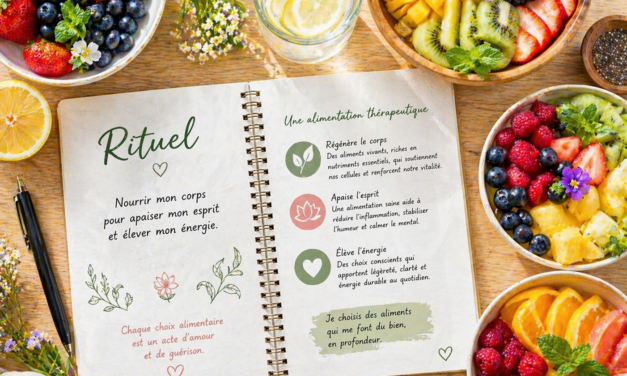 Rituel
Nourrir mon corps
pour apaiser mon esprit
et élever mon énergie.
Chaque choix alimentaire
est un acte d'amour
et de guérison.
Une alimentation thérapeutique
Régénère le corps
Des aliments vivants, riches en
nutriments essentiels, qui soutiennent
nos cellules et renforcent notre vitalité.
Apaise l'esprit
Une alimentation saine aide à
réduire l'inflammation, stabiliser
l'humeur et calmer le mental.
Élève l'énergie
Des choix conscients qui
apportent légèreté, clarté et
énergie durable au quotidien.
Je choisis des aliments
qui me font du bien,
en profondeur.